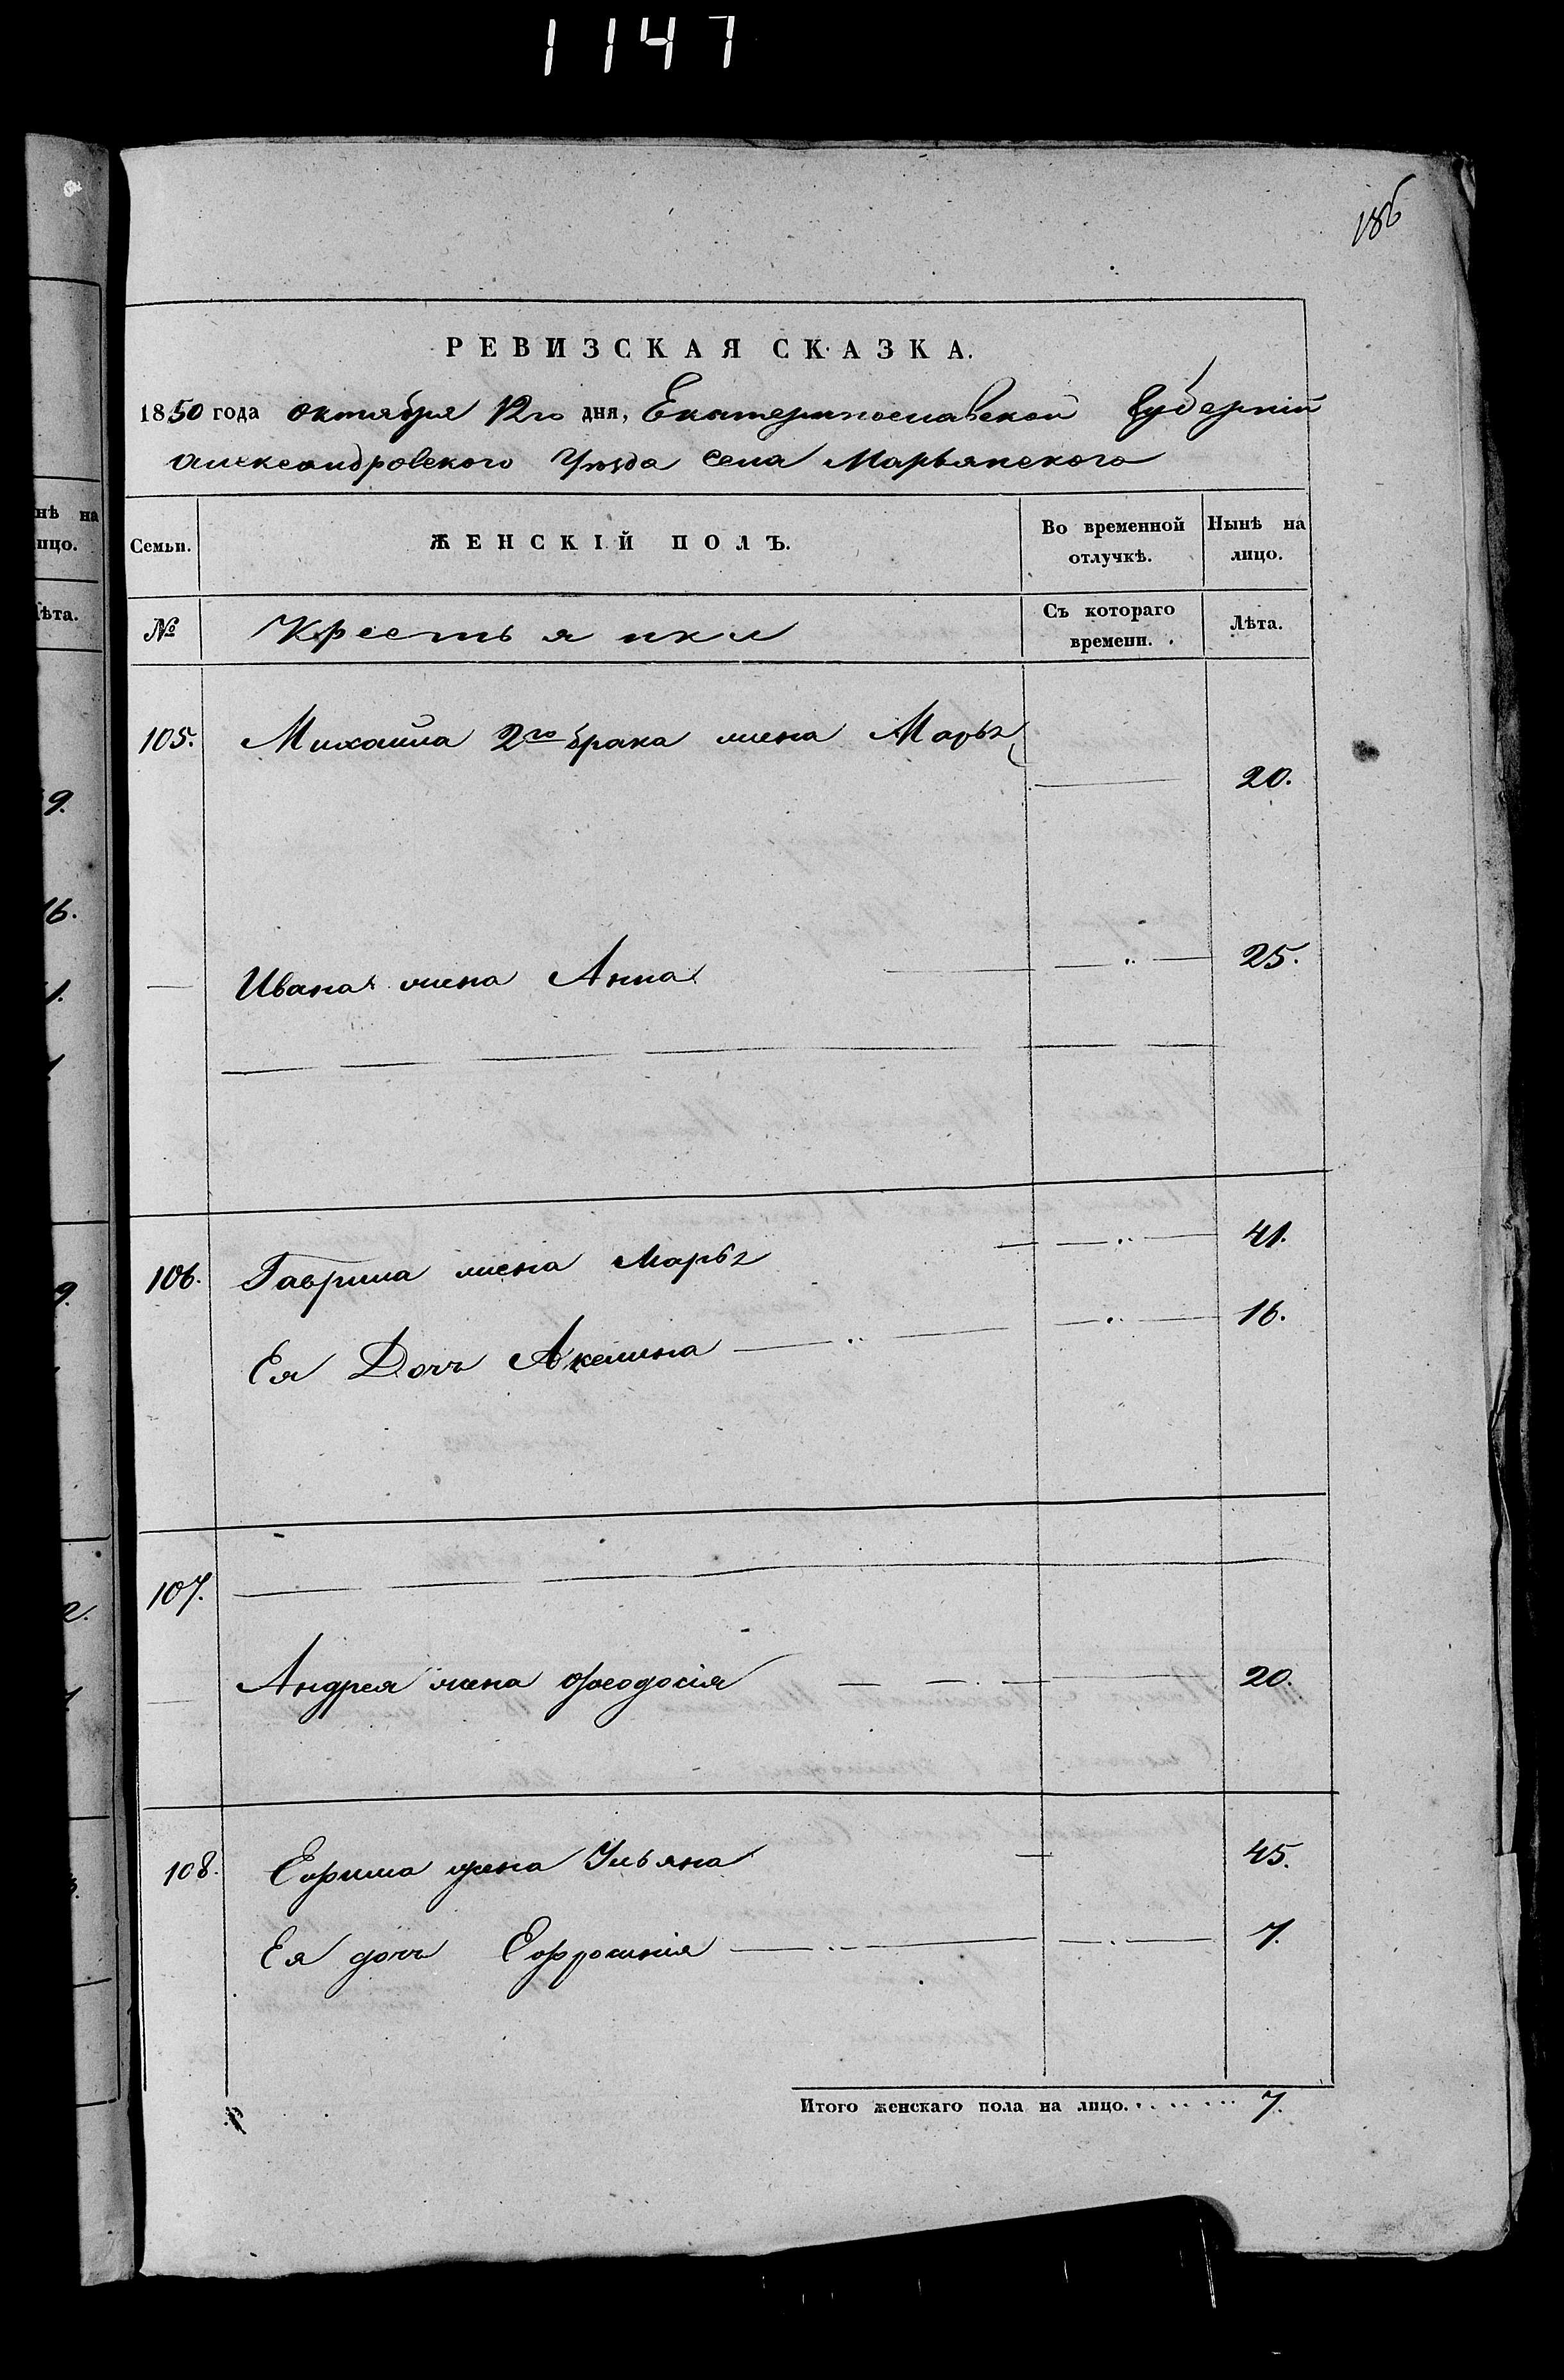 1147
186
РЕВИЗСКАЯ СКАЗКА.
1850 года октября 12го дня, Екатеринославской Губерніи
Александровского Уѣзда села Марьянского
Семьи. ЖЕНСКІЙ ПОЛЪ. Во временной отлучкѣ. Нынѣ на лицо.
№ Крестьянки Съ котораго времени. Лѣта.
105. Михаила 2го брака жена Марья
20.
Ивана жена Анна 25.
106. Гаврила жена Марья 41.
Ея Дочь Акелина 16.
107.
Андрея жена Феодосія 20.
108. Ефима жена Ульяна 45.
Ея дочь Ефросинія 7.
Итого женскаго пола на лицо. 7.
нѣ на
ицо.
ѣта.
9.
16.
1.
9.
2.